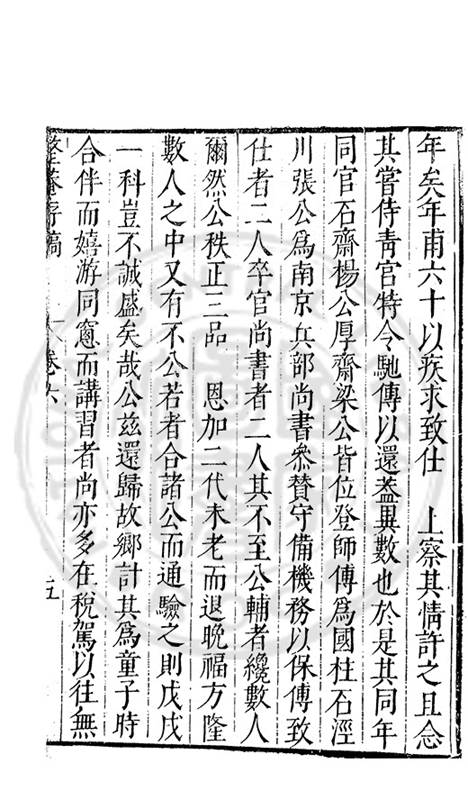 年矣年甫六十以疾求致仕　上察其情許之且念
其嘗侍青宮特令馳傳以還葢異數也於是其同年
同官石齋楊公厚齋梁公皆位登師傅為國柱石涇
川張公為南京兵部尚書叅贊守備機務以保傅致
仕者二人卒官尚書者二人其不至公輔者纔數人
爾然公秩正三品　恩加二代未老而退晚福方隆
數人之中又有不公若者合諸公而通驗之則戊戌
一科豈不誠盛矣哉公兹還歸故鄉計其為童子時
合伴而嬉游同窻而講習者尚亦多在稅駕以往無
整菴存稿　卷六　五